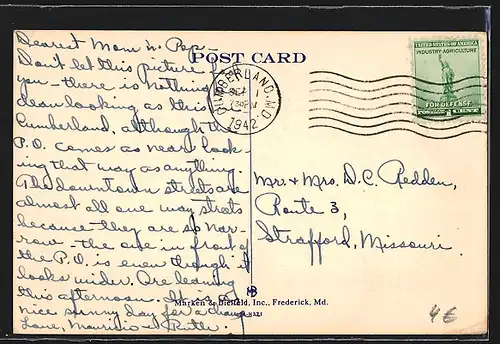 Dearest Mom & Pop -
Don't let this picture fool
you - there is nothing
clean looking as this in
Cumberland, although the
P.O. comes as near look-
ing that way as anything.
The downtown streets are
almost all one way streets
because they are so nar-
row - the one in front of
the P.O. is even though it
looks wider. Are leaving
this afternoon. It is a
nice sunny day for a change
Love, Maurice & Ruth.
POST CARD
CUMBERLAND, MD.
1942
UNITED STATES OF AMERICA
INDUSTRY AGRICULTURE
FOR DEFENSE
POSTAGE 1 CENT
Mr. & Mrs. D.C. Redden,
Route 3,
Strafford, Missouri.
MB
Marken & Bielfeld, Inc., Frederick, Md.
4€